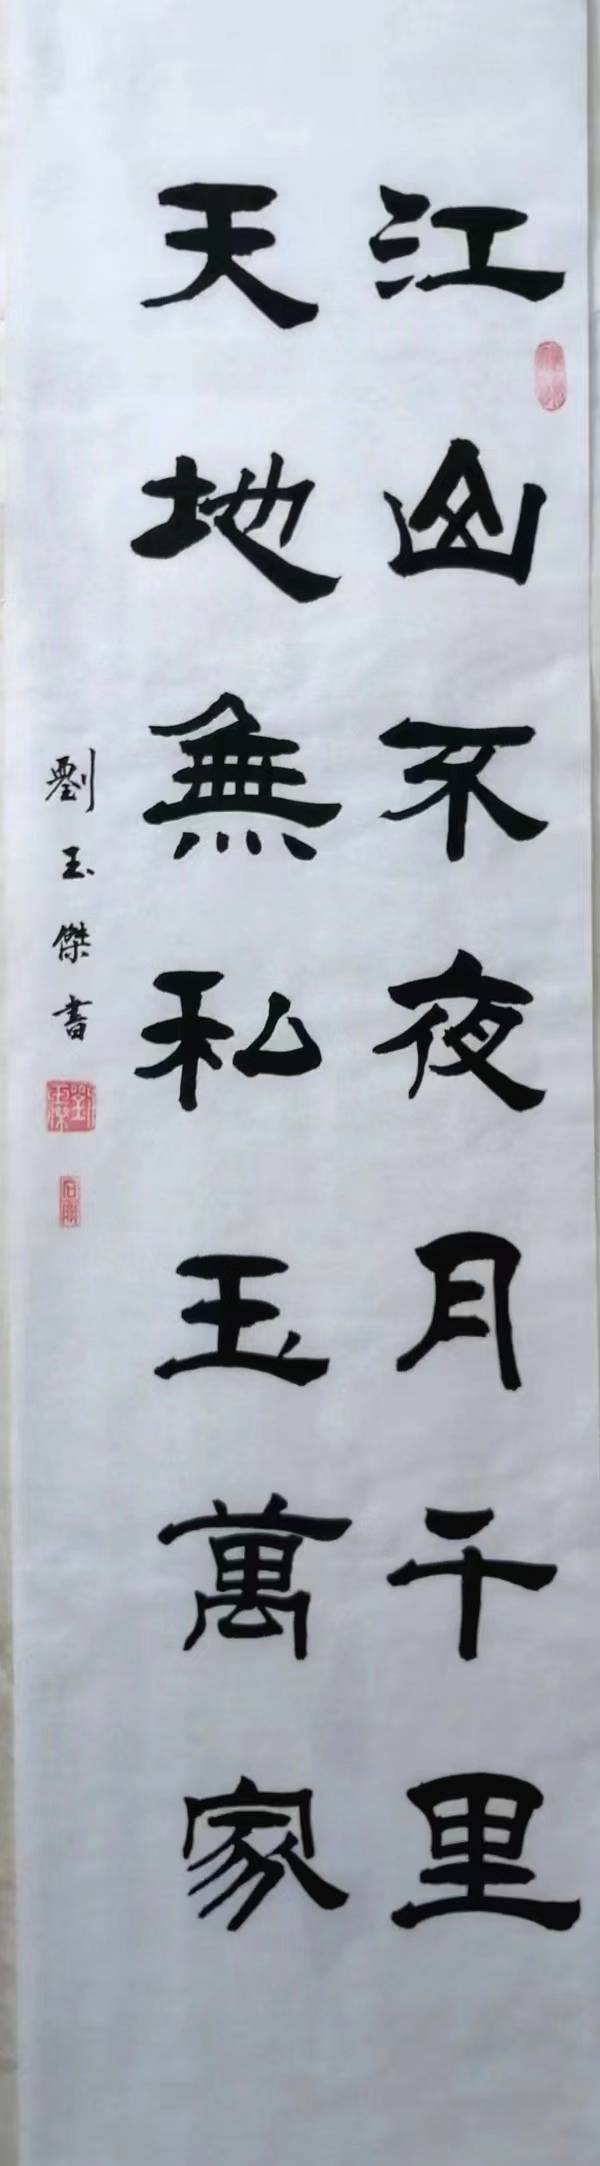 江山不夜月千里
天地無私玉萬家
劉玉傑書